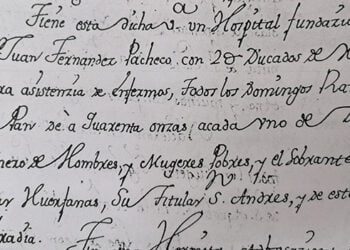 Tiene esta dicha vª un Hospital fundazio
Juan Fernandez Pacheco con 2đ Ducados de
ra asistenzia de enfermos, todos los Domingos Ra
Pan de à quarenta onzas, acada vno de
nero de Hombres, y Mugeres Pobres, y el Sobrante
ar Huerfanas, Su Titular S. Andres, y de este
xadia.